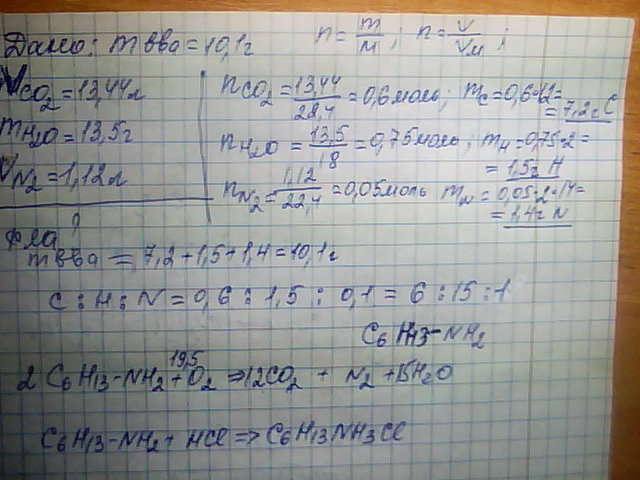 Дано: m вва = 10,1г   n = m/M ; n = V/Vм ;
VCO2 = 13,44л   nCO2 = 13,44/22,4 = 0,6моль; mC = 0,6·12 = = 7,2г C
mH2O = 13,5г   nH2O = 13,5/18 = 0,75моль; mH = 0,75·2 = = 1,5г H
VN2 = 1,12л   nN2 = 1,12/22,4 = 0,05моль mN = 0,05·2·14 = = 1,4г N
ф-ла ?
m вва = 7,2 + 1,5 + 1,4 = 10,1г
C : H : N = 0,6 : 1,5 : 0,1 = 6 : 15 : 1
C6H13-NH2
2 C6H13-NH2 + 19,5 O2 => 12CO2 + N2 + 15H2O
C6H13-NH2 + HCl => C6H13NH3Cl